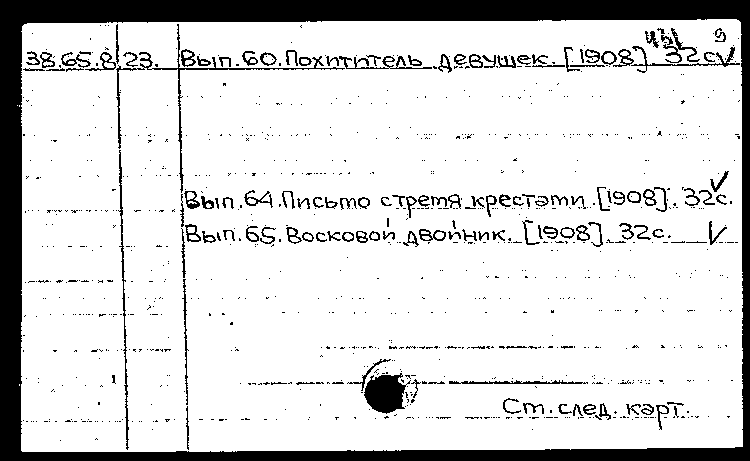 9
38.65.8.23. Вып.60. Похититель девушек. [1908]. 32с.
Вып.64. Письмо с тремя крестами. [1908]. 32с.
Вып.65. Восковой двойник. [1908]. 32с.
См. след. карт.